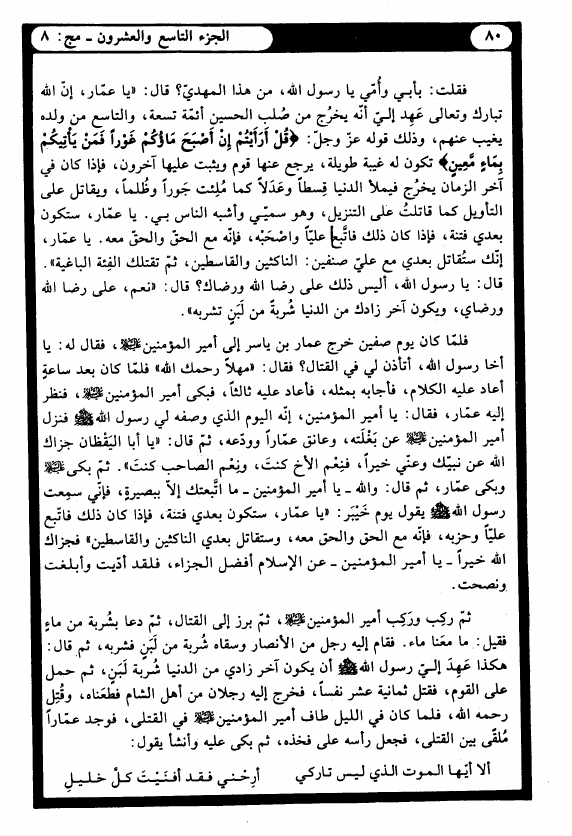 ٨٠
الجزء التاسع والعشرون ـ مج: ٨
فقلت: بأبي وأُمّي يا رسول الله، من هذا المهديّ؟ قال: «يا عمّار، إنّ الله
تبارك وتعالى عَهِد إليّ أنّه يخرُج من صُلب الحسين أئمّة تسعة، والتاسع من ولده
يغيب عنهم، وذلك قوله عزّ وجلّ: ﴿قُلْ أَرَأَيْتُمْ إِنْ أَصْبَحَ مَاؤُكُمْ غَوْراً فَمَنْ يَأْتِيكُمْ
بِمَاءٍ مَّعِينٍ﴾ تكون له غيبة طويلة، يرجع عنها قوم ويثبت عليها آخرون، فإذا كان في
آخر الزمان يخرُج فيملأ الدنيا قِسطاً وعَدْلاً كما مُلِئت جَوراً وظُلماً، ويقاتل على
التأويل كما قاتلتُ على التنزيل، وهو سميّي وأشبه الناس بي. يا عمار، ستكون
بعدي فتنة، فإذا كان ذلك فاتَّبع عليّاً واصْحَبْه، فإنّه مع الحقّ والحق معه. يا عمار،
إنّك ستُقاتل بعدي مع عليّ صنفين: الناكثين والقاسطين، ثمّ تقتلك الفِئة الباغية».
قال: يا رسول الله، أليس ذلك على رضا الله ورضاك؟ قال: «نعم، على رضا الله
ورضاي، ويكون آخر زادك من الدنيا شُربةً من لَبَنٍ تشربه».
فلمّا كان يوم صفين خرج عمار بن ياسر إلى أمير المؤمنين عليه السلام، فقال له: يا
أخا رسول الله، أتأذن لي في القتال؟ فقال: «مهلاً رحمك الله» فلمّا كان بعد ساعةٍ
أعاد عليه الكلام، فأجابه بمثله، فأعاد عليه ثالثاً، فبكى أمير المؤمنين عليه السلام، فنظر
إليه عمّار، فقال: يا أمير المؤمنين، إنّه اليوم الذي وصفه لي رسول الله ﷺ فنزل
أمير المؤمنين عليه السلام عن بَغْلَته، وعانق عمّاراً وودّعه، ثمّ قال: «يا أبا اليَقْظان جزاك
الله عن نبيّك وعنّي خيراً، فنِعْم الأخ كنتَ، ونِعْم الصاحب كنتَ». ثمّ بكى عليه السلام
وبكى عمّار، ثم قال: والله ـ يا أمير المؤمنين ـ ما اتَّبعتك إلاّ ببصيرةٍ، فإنّي سمِعت
رسول الله ﷺ يقول يوم خَيْبَر: «يا عمّار، ستكون بعدي فتنة، فإذا كان ذلك فاتّبع
عليّاً وحزبه، فإنّه مع الحق والحق معه، وستقاتل بعدي الناكثين والقاسطين» فجزاك
الله خيراً ـ يا أمير المؤمنين ـ عن الإسلام أفضل الجزاء، فلقد أدّيت وأبلغت
ونصحت.
ثمّ ركِب وركِب أمير المؤمنين عليه السلام، ثمّ برز إلى القتال، ثمّ دعا بشُربة من ماءٍ
فقيل: ما معَنا ماء. فقام إليه رجل من الأنصار وسقاه شُربة من لَبَنٍ فشربه، ثم قال:
هكذا عَهِدَ إليّ رسول الله ﷺ أن يكون آخر زادي من الدنيا شُربة لَبَنٍ، ثم حمل
على القوم، فقتل ثمانية عشر نفساً، فخرج إليه رجلان من أهل الشام فطَعَناه، وقُتِل
رحمه الله، فلما كان في الليل طاف أمير المؤمنين عليه السلام في القتلى، فوجد عمّاراً
مُلقًى بين القتلى، فجعل رأسه على فخذه، ثم بكى عليه وأنشأ يقول:
ألا أيّها الموت الذي ليس تاركي أرِحْني فقد أفنَيْتَ كلَّ خليلِ